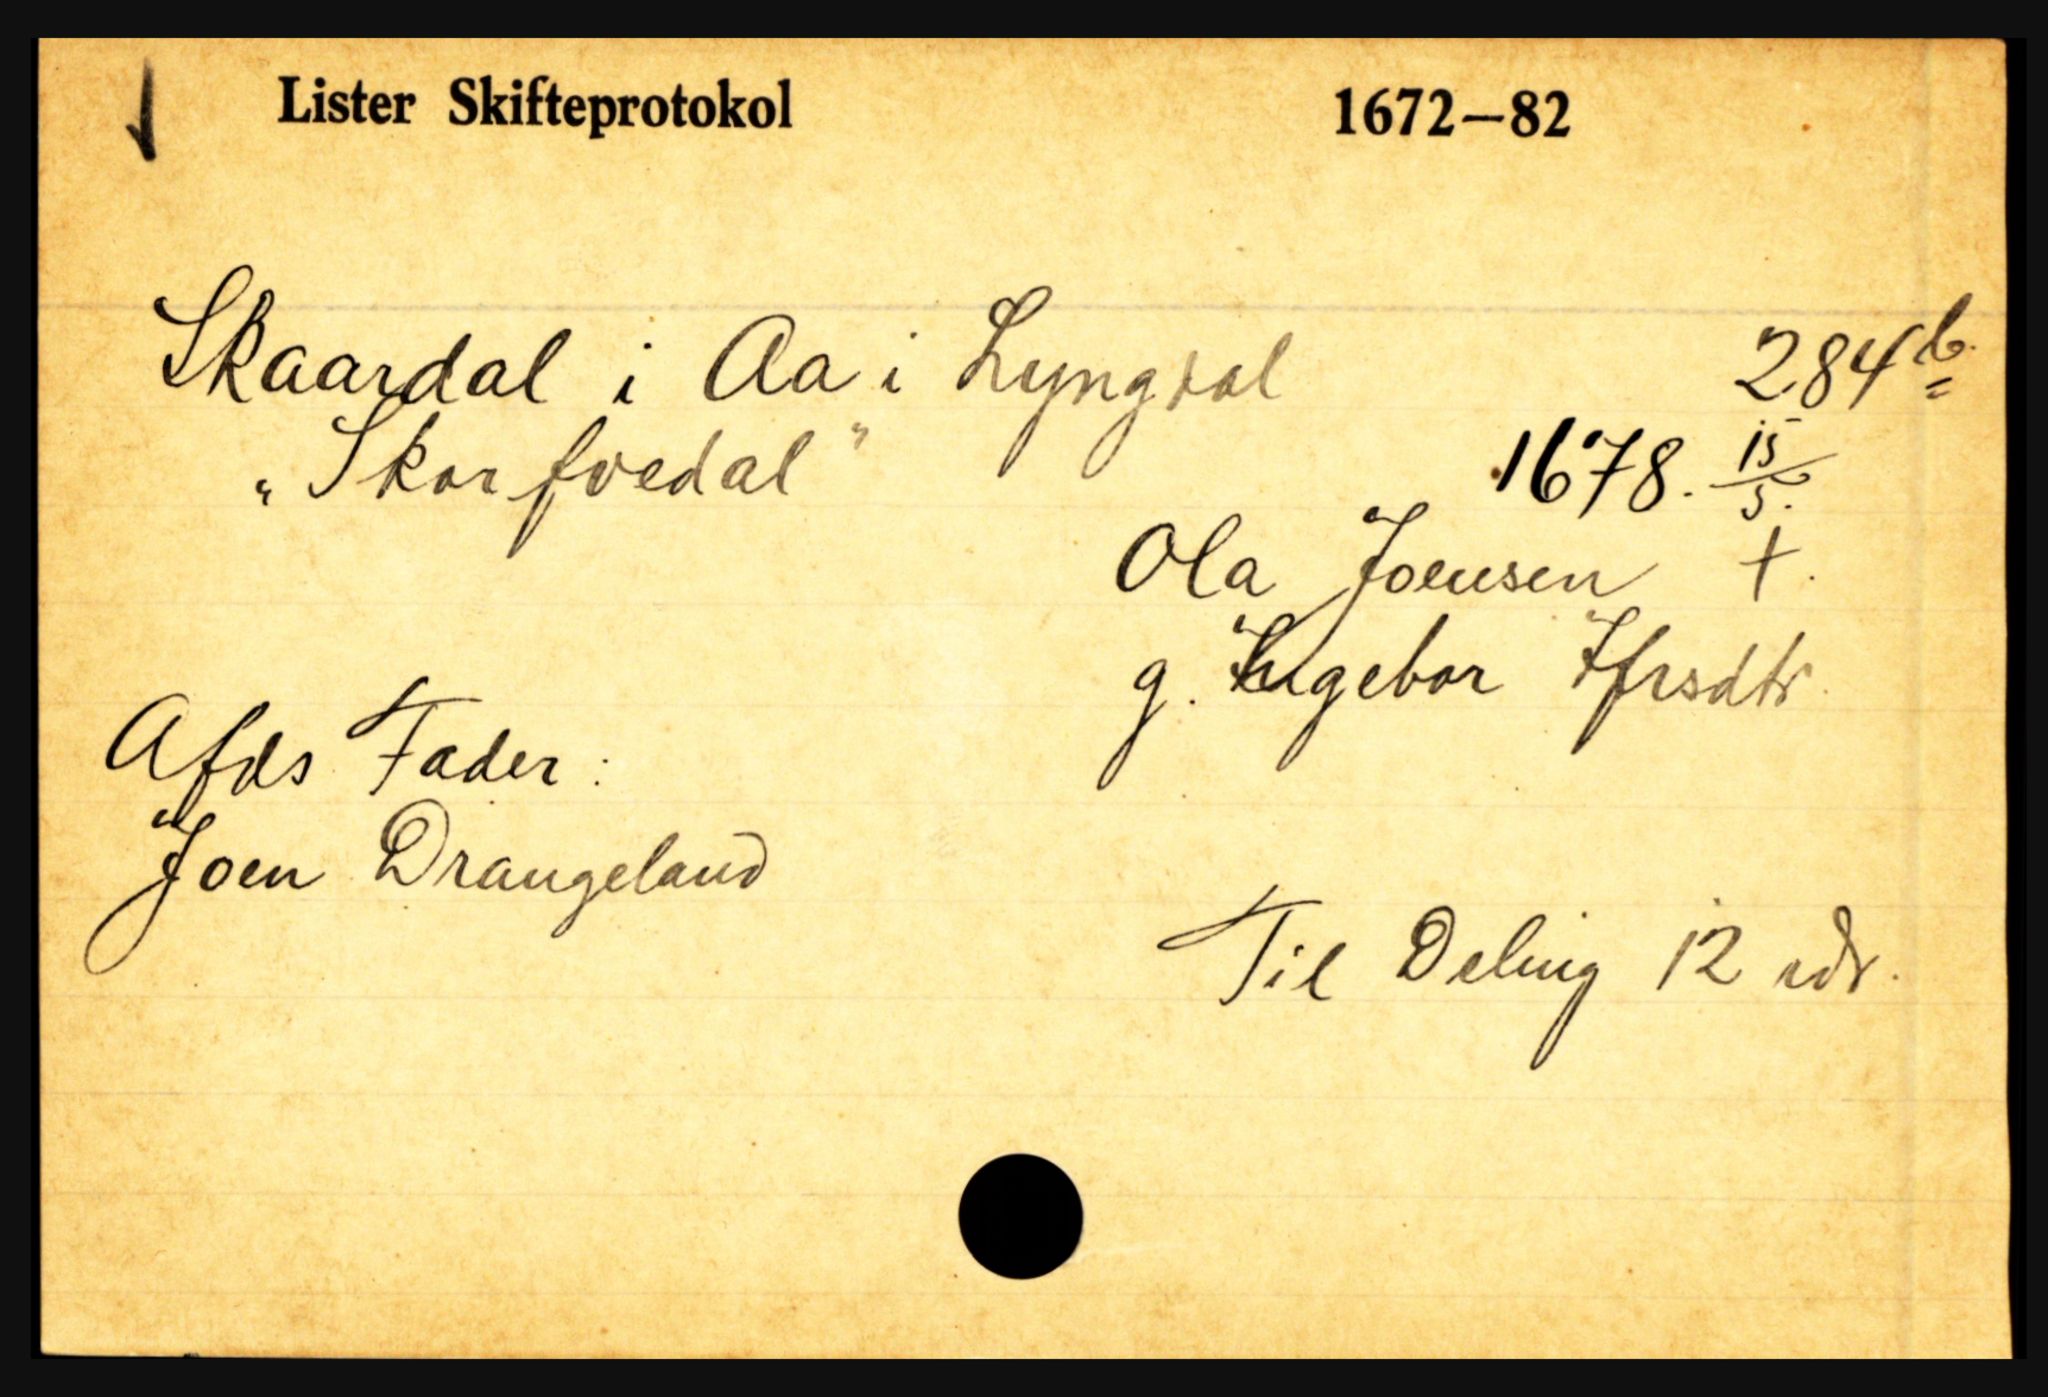 Lister Skifteprotokol 1672–82
Skaardal i Aa i Lyngdal 284 b.
„Skorfvedal" 1678. 15/5.
Ola Joensen †.
g. Ingebor Ifrsdtr.
Afdes Fader:
Joen Drangeland
Til Deling 12 rdr.